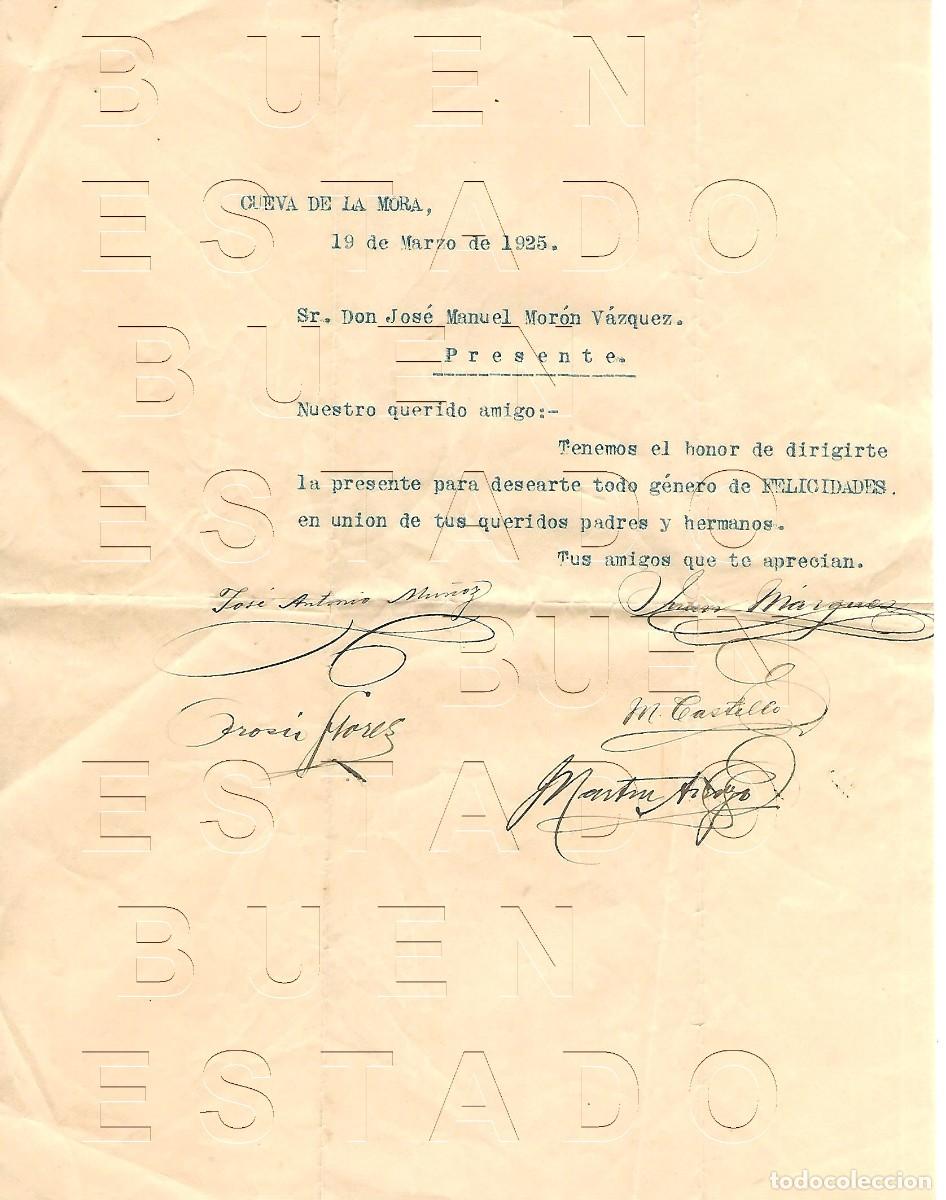 BUEN
ESTADO
CUEVA DE LA MORA,
19 de Marzo de 1925.
Sr. Don José Manuel Morón Vázquez.
BUEN
Presente.
Nuestro querido amigo:-
Tenemos el honor de dirigirte
la presente para desearte todo género de FELICIDADES.
ESTADO
en union de tus queridos padres y hermanos.
Tus amigos que te aprecian.
José Antonio Muñoz
Juan Márquez
BUEN
Flores
M. Castello
ESTADO
Martin
BUEN
ESTADO
todocoleccion